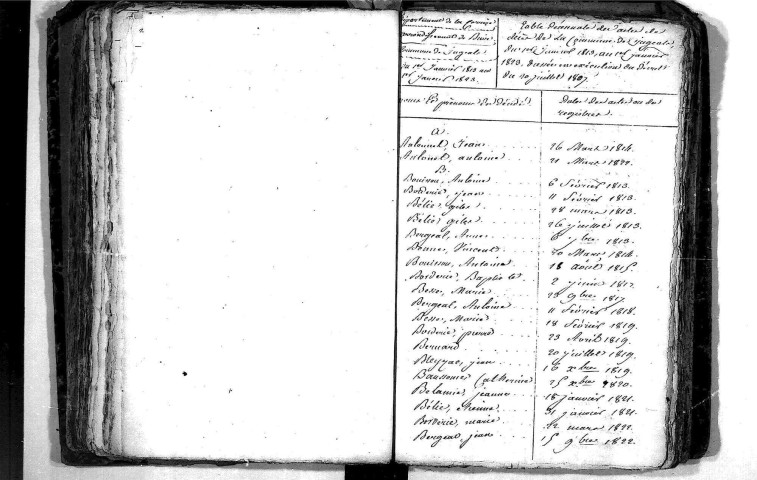 Département de la Corrèze
arrondissement de Brive
Commune de
Du 1er Janvier 1813 au
1er Janvier 1823.
Table Décennale des actes de
décès de la Commune de
du 1er Janvier 1813, au 1er Janvier
1823, dressée en exécution du Décret
du 20 juillet 1807.
noms et prénoms des Décédés.
Dates des actes ou des
registres.
A.
Aulonnet, Jean 26 Mars 1814.
Aulonet, antoine 21 Mars 1822.
B.
Bouissou, Antoine 6 février 1813.
Borderie, jean 11 février 1813.
Bélie, giles 28 mars 1813.
Bélie, giles 26 juillet 1813.
Bergeal, Anne 8 7bre 1813.
Bonne, Vincent 20 Mars 1814.
Bouissou, Antoine 18 août 1815.
Borderie, Baptiste 2 juin 1817.
Besse, Marie 22 9bre 1817.
Bergeal, Antoine 11 février 1818.
Besse, Marie 18 février 1819.
Borderie, pierre 23 Avril 1819.
Bernard 20 juillet 1819.
Bleyzac, jean 16 xbre 1819.
Baussonie, Catherine 25 xbre 1820.
Belamie, jeanne 18 janvier 1821.
Bélie, etienne 21 janvier 1821.
Borderie, marie 12 mars 1822.
Bergeal, jean 15 9bre 1822.